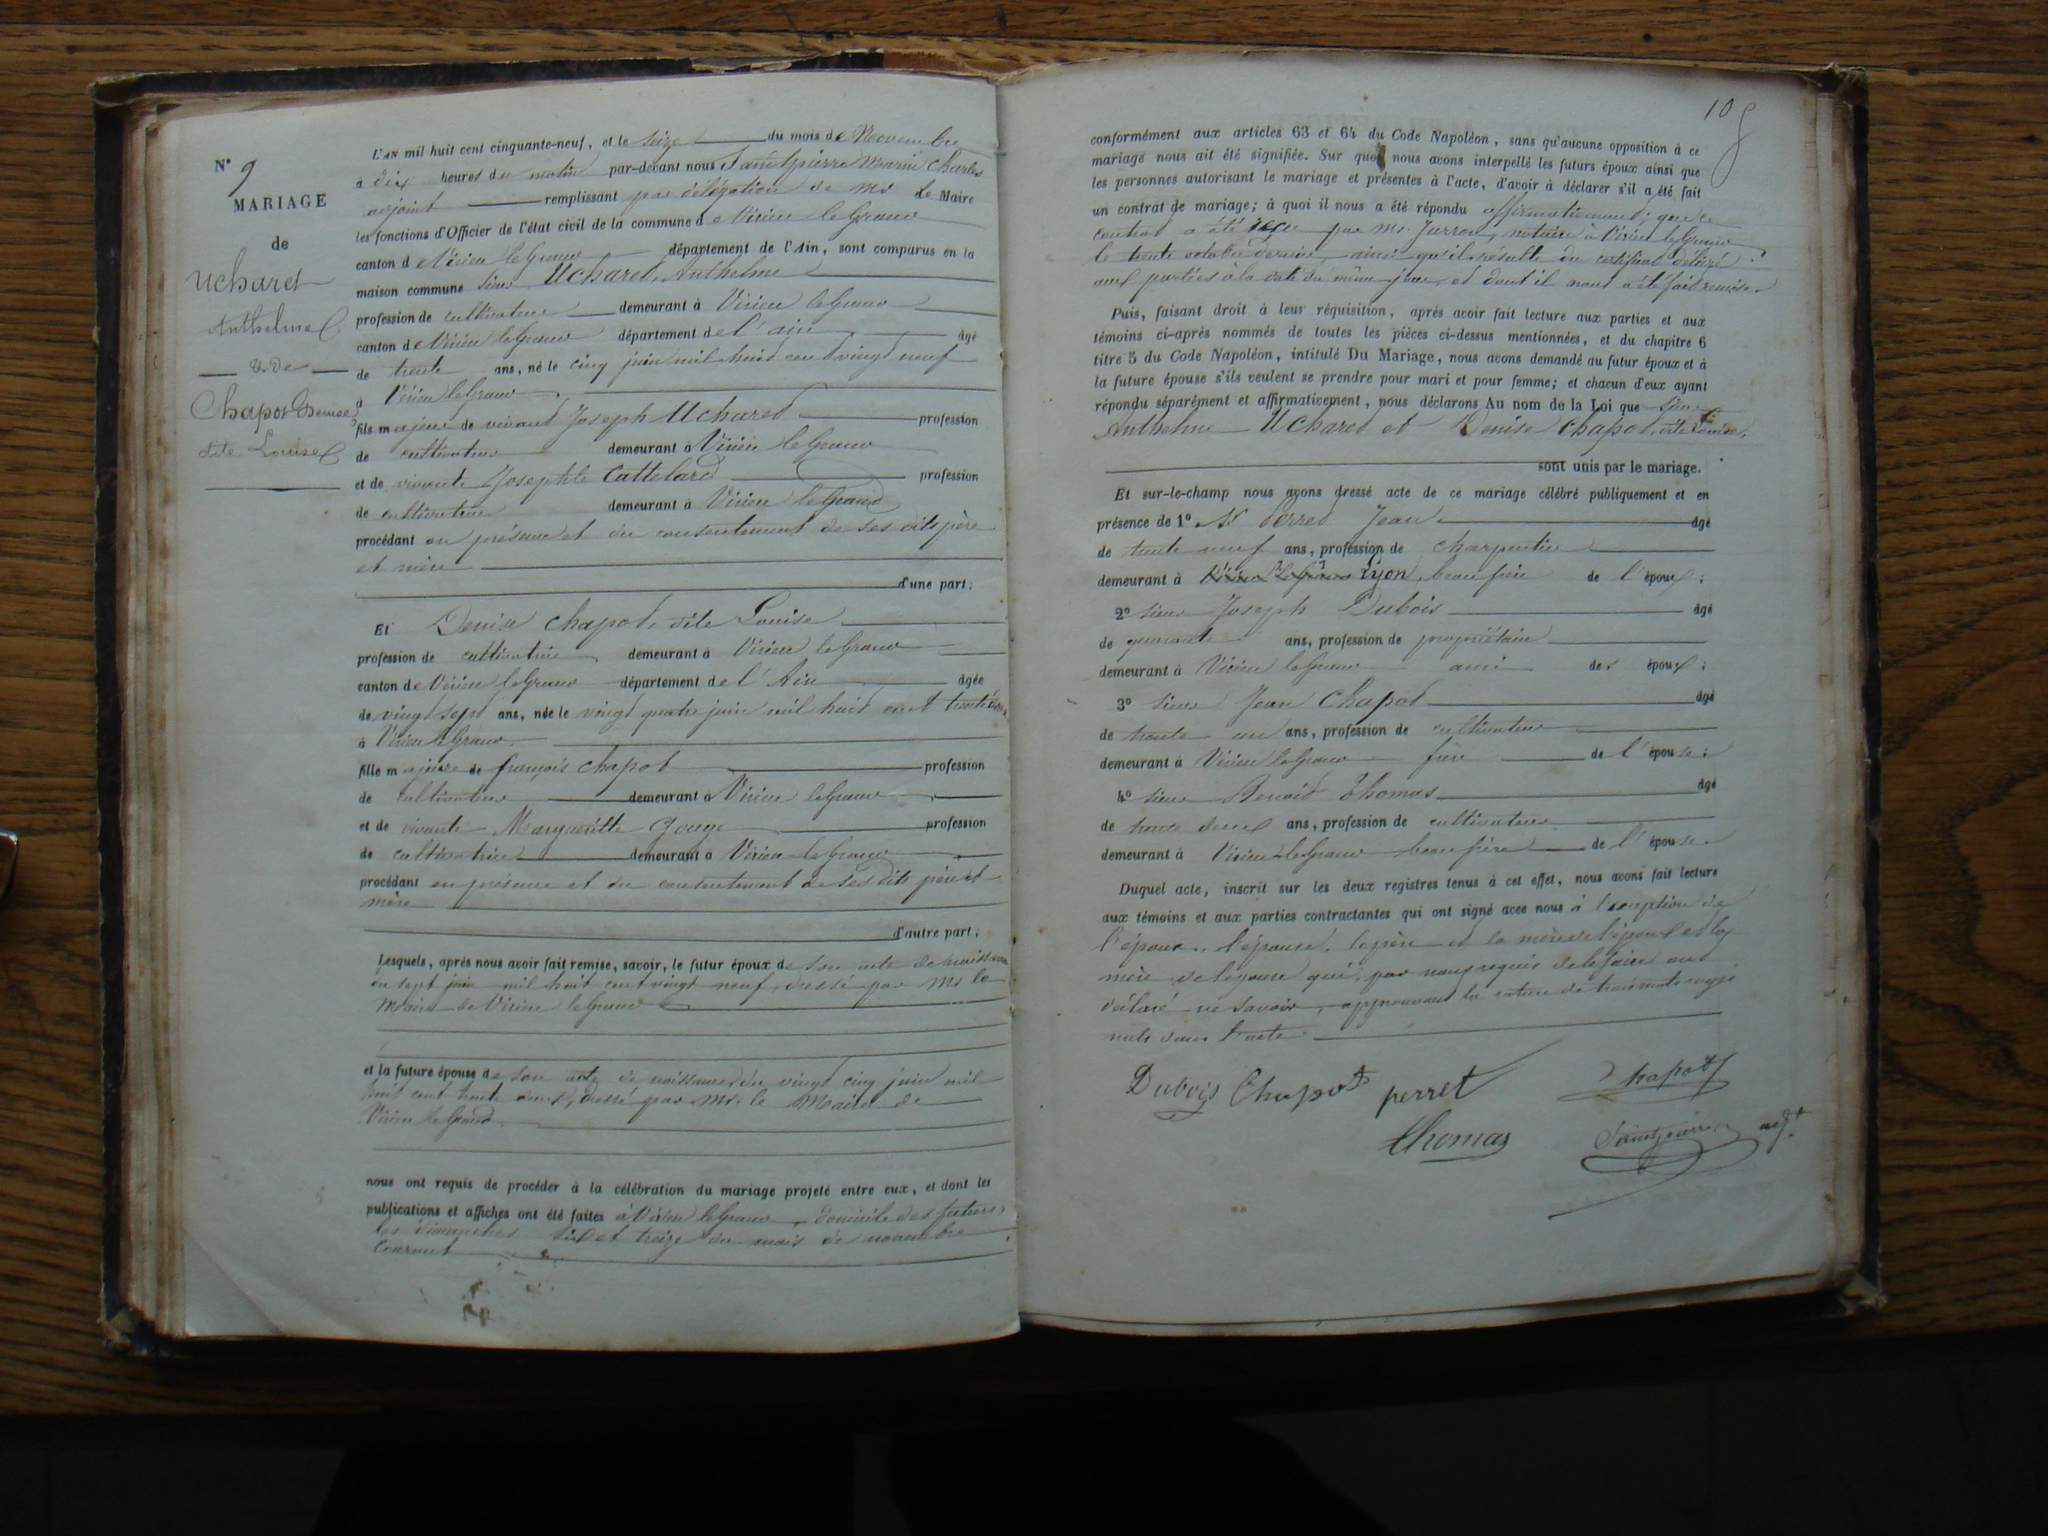 N° 9
MARIAGE
de
Ucharet
Anthelme
& De
Chapot Denise
dite Louise
L'AN mil huit cent cinquante-neuf, et le seize du mois de Novembre
à dix heures du matin par-devant nous Saintpierre Marin Charles
adjoint remplissant par délégation de Mr le Maire
les fonctions d'Officier de l'état civil de la commune de Virieu le Grand
canton de Virieu le Grand département de l'Ain, sont comparus en la
maison commune sieur Ucharet Anthelme
profession de cultivateur demeurant à Virieu le Grand
canton de Virieu le Grand département de l'ain âgé
de trente ans, né le cinq juin mil huit cent vingt neuf
à Virieu le Grand
fils majeur de vivant Joseph Ucharet profession
de cultivateur demeurant à Virieu le Grand
et de vivante Josephte Cattelard profession
de cultivatrice demeurant à Virieu le Grand
procédant en présence et du consentement de ses dits père
et mère
d'une part;
Et Denise Chapot, dite Louise
profession de cultivatrice demeurant à Virieu le Grand
canton de Virieu le Grand département de l'Ain âgée
de vingt sept ans, née le vingt quatre juin mil huit cent trente deux
à Virieu le Grand
fille majeure de françois Chapot profession
de cultivateur demeurant à Virieu le Grand
et de vivante Margueritte Gouge profession
de cultivatrice demeurant à Virieu le Grand
procédant en présence et du consentement de ses dits père et
mère
d'autre part;
Lesquels, après nous avoir fait remise, savoir, le futur époux de son acte de naissance
du sept juin mil huit cent vingt neuf, dressé par Mr le
Maire de Virieu le Grand
et la future épouse de son acte de naissance du vingt cinq juin mil
huit cent trente deux, dressé par Mr. le Maire de
Virieu le Grand
nous ont requis de procéder à la célébration du mariage projeté entre eux, et dont les
publications et affiches ont été faites à Virieu le Grand domicile des futurs,
les dimanches six et treize du mois de novembre
courant
108
conformément aux articles 63 et 64 du Code Napoléon, sans qu'aucune opposition à ce
mariage nous ait été signifiée. Sur quoi nous avons interpellé les futurs époux ainsi que
les personnes autorisant le mariage et présentes à l'acte, d'avoir à déclarer s'il a été fait
un contrat de mariage; à quoi il nous a été répondu affirmativement; que ce
contrat a été reçu par Mr. Jurron, notaire à Virieu le Grand
le trente octobre dernier, ainsi qu'il résulte du certificat délivré
aux parties à la date du même jour et dont il nous a été fait remise.
Puis, faisant droit à leur réquisition, après avoir fait lecture aux parties et aux
témoins ci-après nommés de toutes les pièces ci-dessus mentionnées, et du chapitre 6
titre 5 du Code Napoléon, intitulé Du Mariage, nous avons demandé au futur époux et à
la future épouse s'ils veulent se prendre pour mari et pour femme; et chacun d'eux ayant
répondu séparément et affirmativement, nous déclarons Au nom de la Loi que sieur
Anthelme Ucharet et Denise Chapot, dite Louise,
sont unis par le mariage.
Et sur-le-champ nous avons dressé acte de ce mariage célébré publiquement et en
présence de 1° Sr Perret Jean âgé
de trente neuf ans, profession de charpentier
demeurant à Virieu le Grand Lyon, beau frère de l'époux;
2° sieur Joseph Dubois âgé
de quarante ans, profession de propriétaire
demeurant à Virieu le Grand ami des époux;
3° sieur Jean Chapot âgé
de trente un ans, profession de cultivateur
demeurant à Virieu le Grand frère de l'épouse;
4° sieur Benoid Thomas âgé
de trente deux ans, profession de cultivateur
demeurant à Virieu le Grand beau frère de l'épouse.
Duquel acte, inscrit sur les deux registres tenus à cet effet, nous avons fait lecture
aux témoins et aux parties contractantes qui ont signé avec nous à l'exception de
l'époux, l'épouse, le père et la mère de l'époux et la
mère de l'épouse qui, par nous requis de le faire ont
déclaré ne savoir, approuvant la rature de trois mots rayés
nuls dans l'acte
Dubois Chapot perret Chapot
Thomas Saintpierre adjt